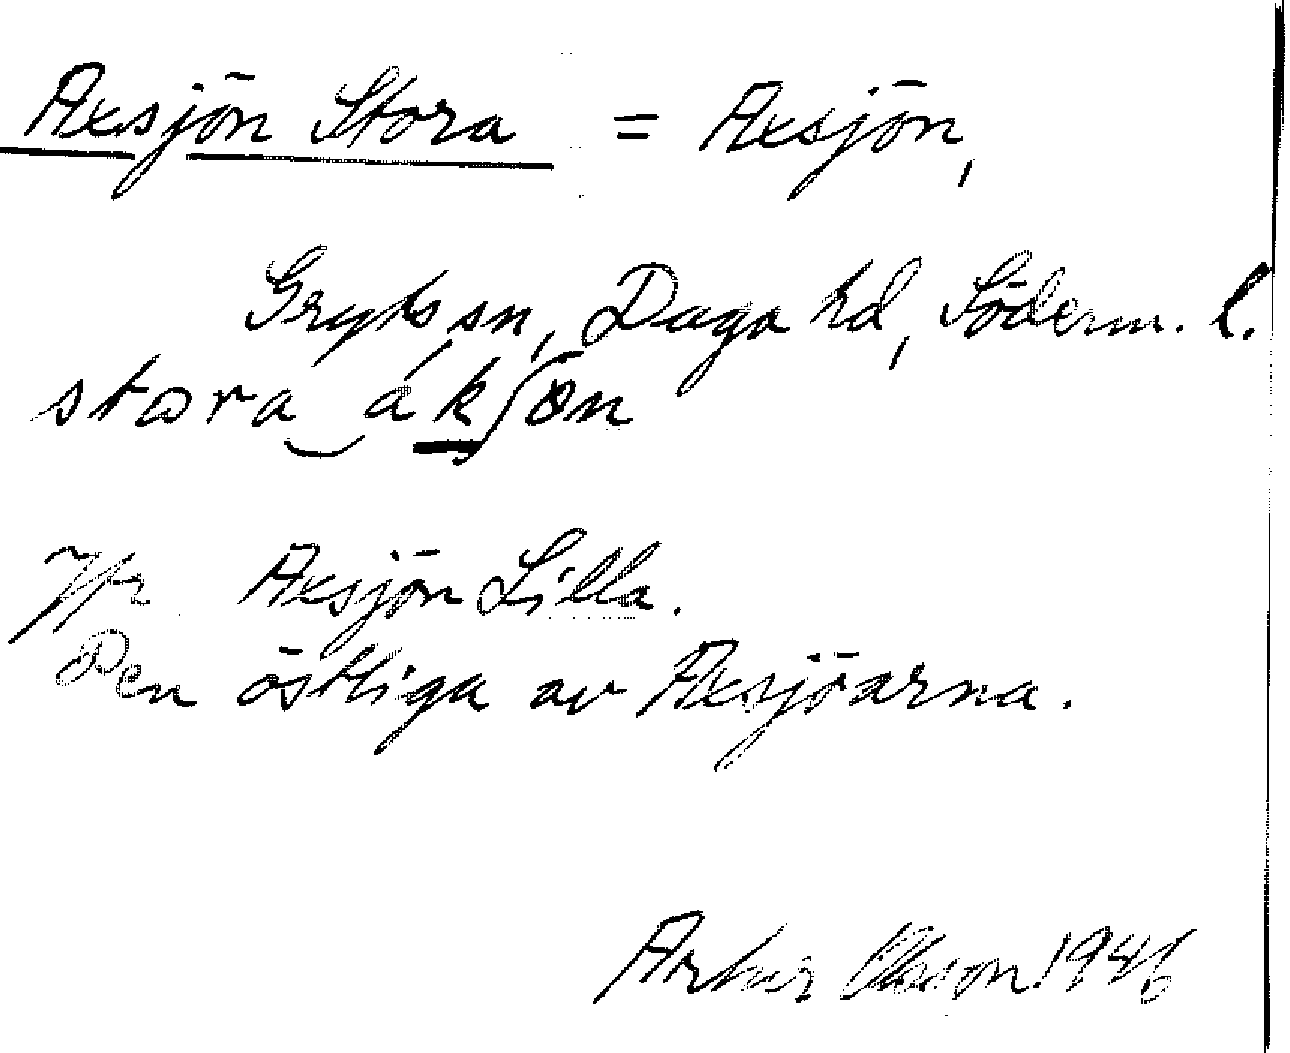 Axsjön Stora = Axsjön,
Gryts sn, Daga hd, Söderm. l.
stora‿ákʃön
Jfr Axsjön Lilla.
Den östliga av Axsjöarna.
Artur Olsson 1946